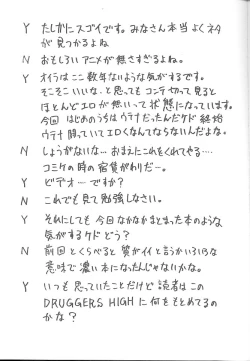 Y たしかにスゴイです。みなさん本当よくネタ
が見つかるよね
N おもしろいアニメが無さすぎるよね。
Y オイラはここ数年ないような気がするです。
そこそこいいな、と思ってもコンテ切って見ると
ほとんどエロが無いって状態になっています。
今回はじめのうちはウテナだったんだケド 終始
ウテナ闘っていてエロくなんてならないんだよな。
N しょうがないな…おまえにこれをくれてやる…
コミケの時の宿賃がわりだー。
Y ビデオーですか?
N これでも見て勉強しなさい。
Y それにしても今回なかなかまとまった本のような
気がするケドどう?
N 前回とくらべると質がイイと言うかいろいろな
意味で濃い本になったんじゃないかな。
Y いつも思っていたことだけど読者はこの
DRUGGERS HIGHに何をもとめてるの
かな?